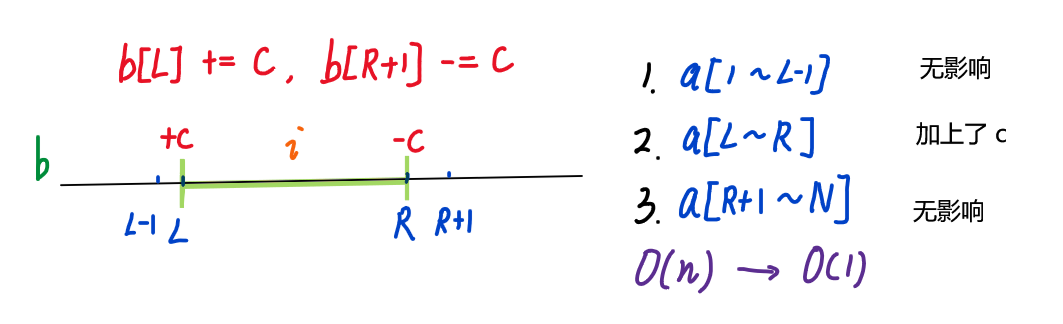 b[L] += C, b[R+1] -= C
+C i -C
b
L-1 L R R+1
1. a[1 ~ L-1] 无影响
2. a[L ~ R] 加上了 c
3. a[R+1 ~ N] 无影响
O(n) → O(1)